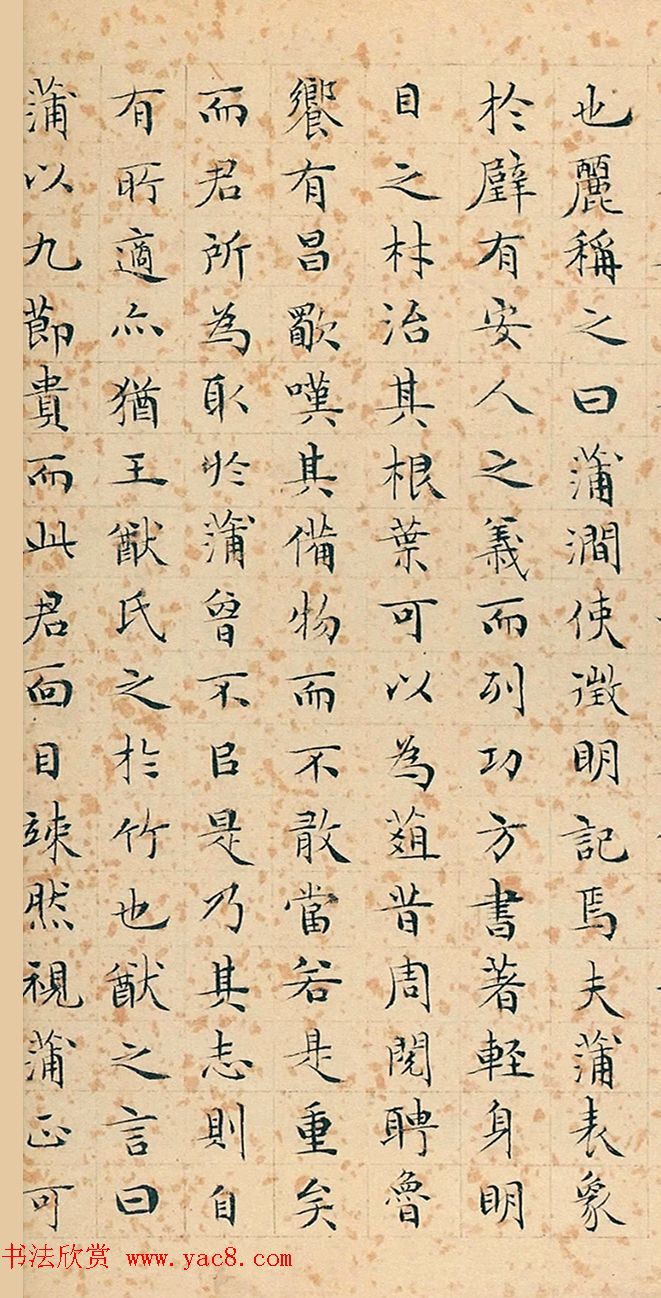 也麗稱之曰蒲澗使徵明記焉夫蒲表象
於璧有安人之義而列功方書著軽身明
目之林治其根葉可以為葅昔周閱聘魯
饗有昌歜嘆其備物而不敢當若是重矣
而君所為取於蒲曾不㠯是乃其志則自
有所適亦猶王猷氏之於竹也猷之言曰
蒲以九節貴而此君面目竦然視蒲正可
书法欣赏 www.yac8.com